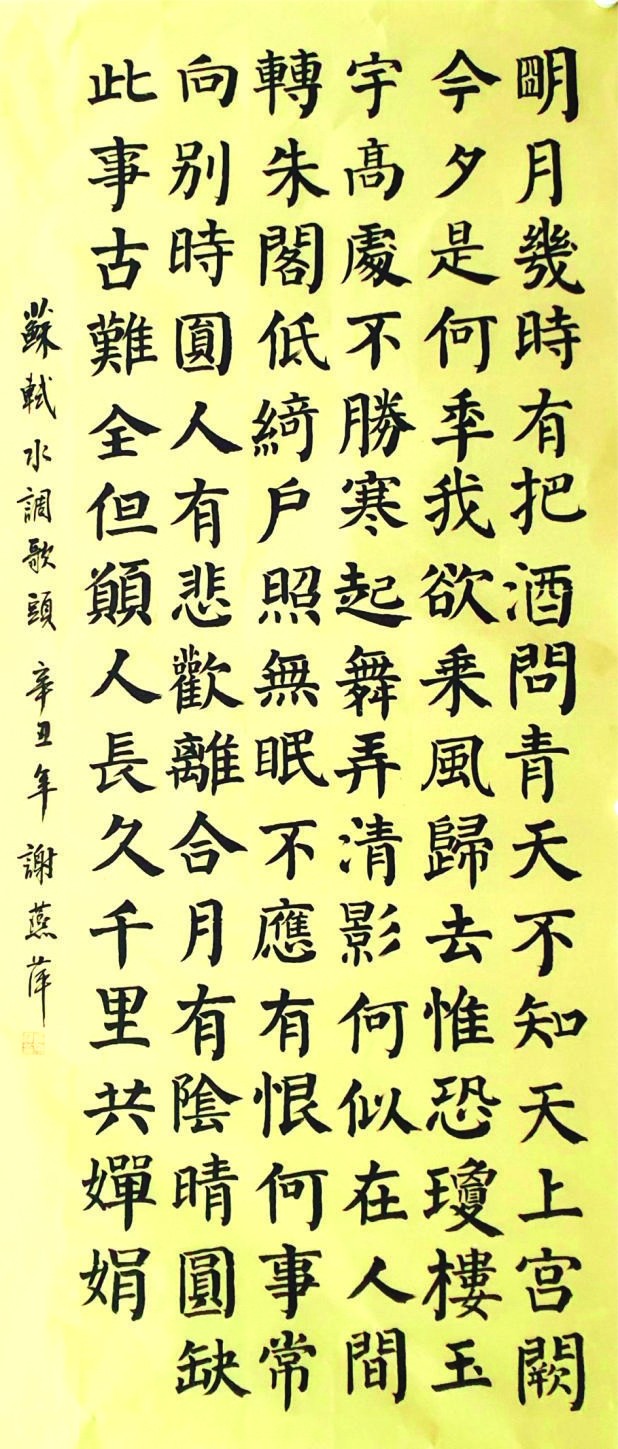 朙月幾時有把酒問青天不知天上宫闕
今夕是何秊我欲乘風歸去惟恐瓊樓玉
宇髙處不勝寒起舞弄清影何似在人間
轉朱閣低綺户照無眠不應有恨何事常
向别時圓人有悲歡離合月有陰晴圓缺
此事古難全但願人長久千里共嬋娟
蘇軾水調歌頭 辛丑年 謝燕萍